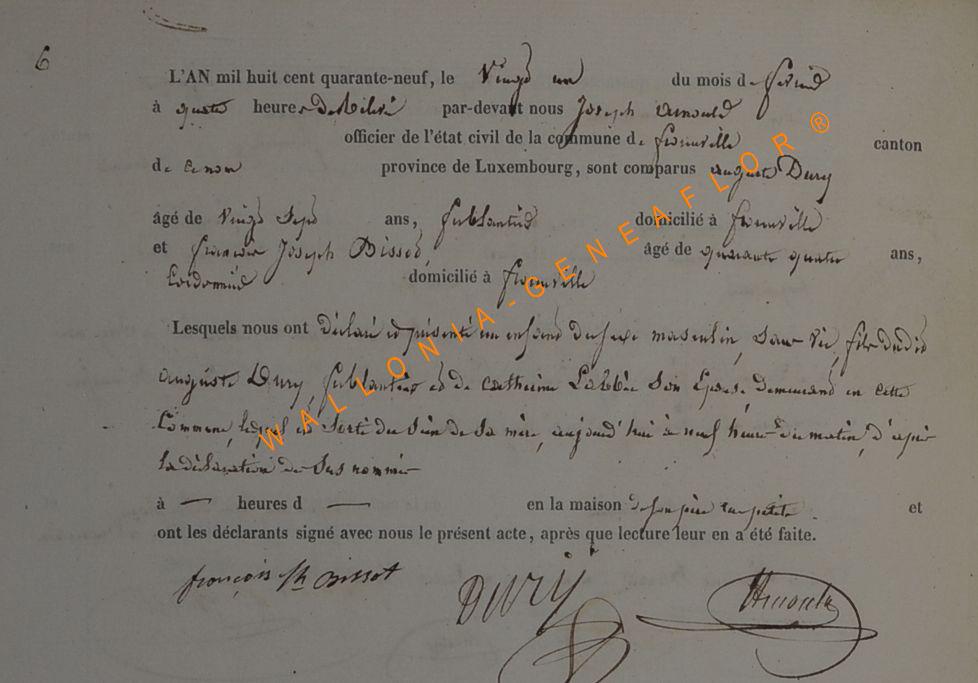 6
L'AN mil huit cent quarante-neuf, le Vingt un du mois de février
à quatre heures de relevé par-devant nous Joseph Arnould
officier de l'état civil de la commune de canton
de province de Luxembourg, sont comparus auguste Dury
âgé de Vingt Sept ans, ferblantier domicilié à
et françois Joseph Bissot, âgé de quarante quatre ans,
Cordonnié domicilié à
Lesquels nous ont déclaré et présenté un enfant du sexe masculin, sans vie, fils dudit
auguste Dury, ferblantier et de catherine Labbée Son Epouse Demeurant en cette
Commune, lequel est Sorti du Sein de Sa mère, aujourd'hui à neuf heures du matin, d'après
la déclaration des Sus nommés
à — heures d — en la maison de son père et
ont les déclarants signé avec nous le présent acte, après que lecture leur en a été faite.
françois Bissot DURY Arnould
WALLONIA-GENEAFLOR®